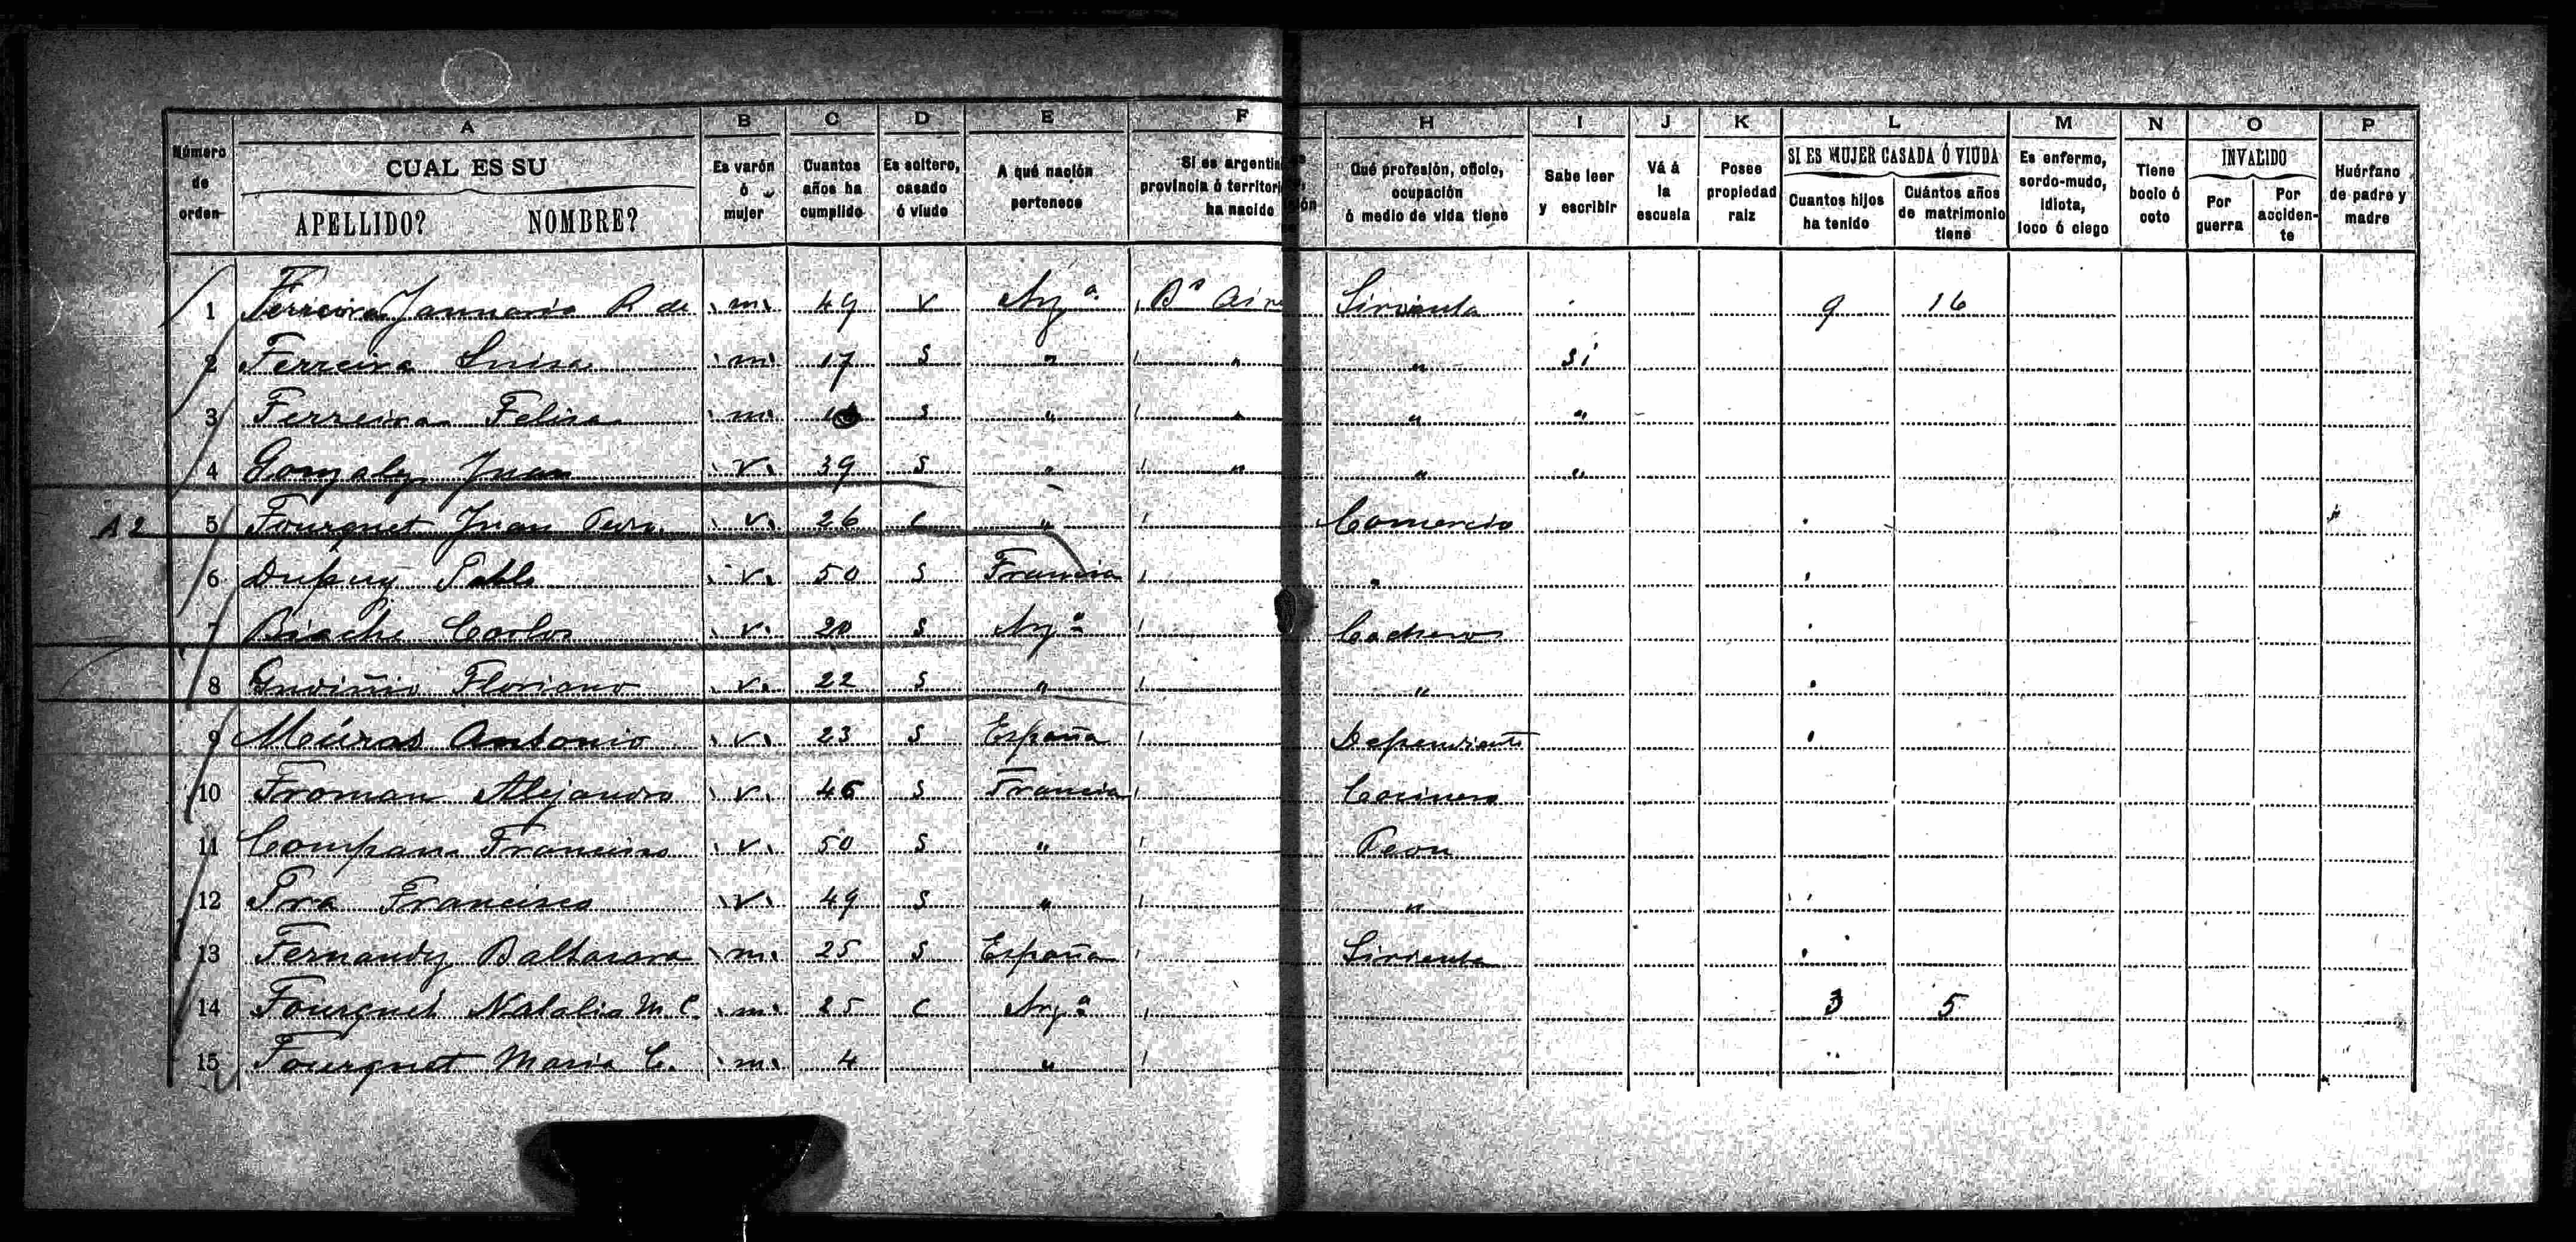 A B C D E F H I J K L M N O P
Número de orden
CUAL ES SU
APELLIDO? NOMBRE?
Es varón ó mujer
Cuantos años ha cumplido
Es soltero, casado ó viudo
A qué nación pertenece
Si es argentin
provincia ó territori
ha nacido
Qué profesión, oficio, ocupación ó medio de vida tiene
Sabe leer y escribir
Vá á la escuela
Posee propiedad raiz
SI ES MUJER CASADA Ó VIUDA
Cuantos hijos ha tenido
Cuántos años de matrimonio tiene
Es enfermo, sordo-mudo, idiota, loco ó ciego
Tiene bocio ó coto
INVALIDO
Por guerra
Por acciden-te
Huérfano de padre y madre
1 Ferreira Januaria R de m 49 v Arg.ª Bs Aire Sirvienta 9 16
2 Ferreira Luisa m 17 s " " " si
3 Ferreira Felisa m s " " " "
4 Gonzalez Juan v 39 s " " " "
A 2 5 Fourquet Juan Pedro v 26 c " Comercio
6 Dupuy Pablo v 50 s Francia "
7 Carlos v 20 s Arg.ª Cochero
8 Floriano v 22 s " "
9 Antonio v 23 s España Dependiente
10 Froman Alejandro v 46 s Francia Cocinero
11 Francisco v 50 s " Peon
12 Pra Francisco v 49 s " "
13 Fernandez Baltasara m 25 s España Sirvienta
14 Fourquet Natalia M C. m 25 c Arg.ª 3 5
15 Fourquet Maria C. m 4 "